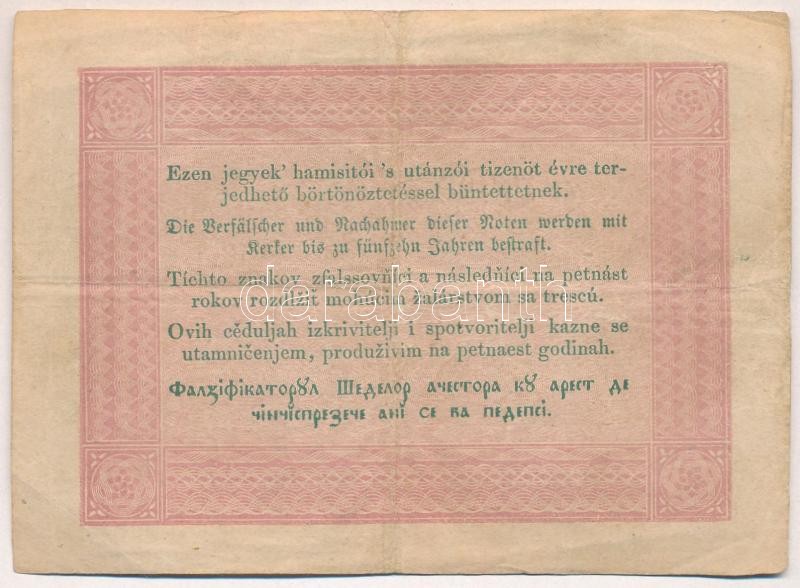 Ezen jegyek' hamisitói 's utánzói tizenöt évre ter-
jedhető börtönöztetéssel büntettetnek.
Die Verfälscher und Nachahmer dieser Noten werden mit
Kerker bis zu fünfzehn Jahren bestraft.
Tíchto znakov zfalssovňíci a následňíci na petnást
rokov rozdlžiť mohúcim žalárstvom sa trescú.
darabanth
Ovih cĕduljah izkrivitelji i spotvoritelji kazne se
utamničenjem, produživim na petnaest godinah.
Фалꙁіфікаторꙋл Шеделор ачестора кꙋ арест де
чінчіспреꙁече ані се ва педепсі.